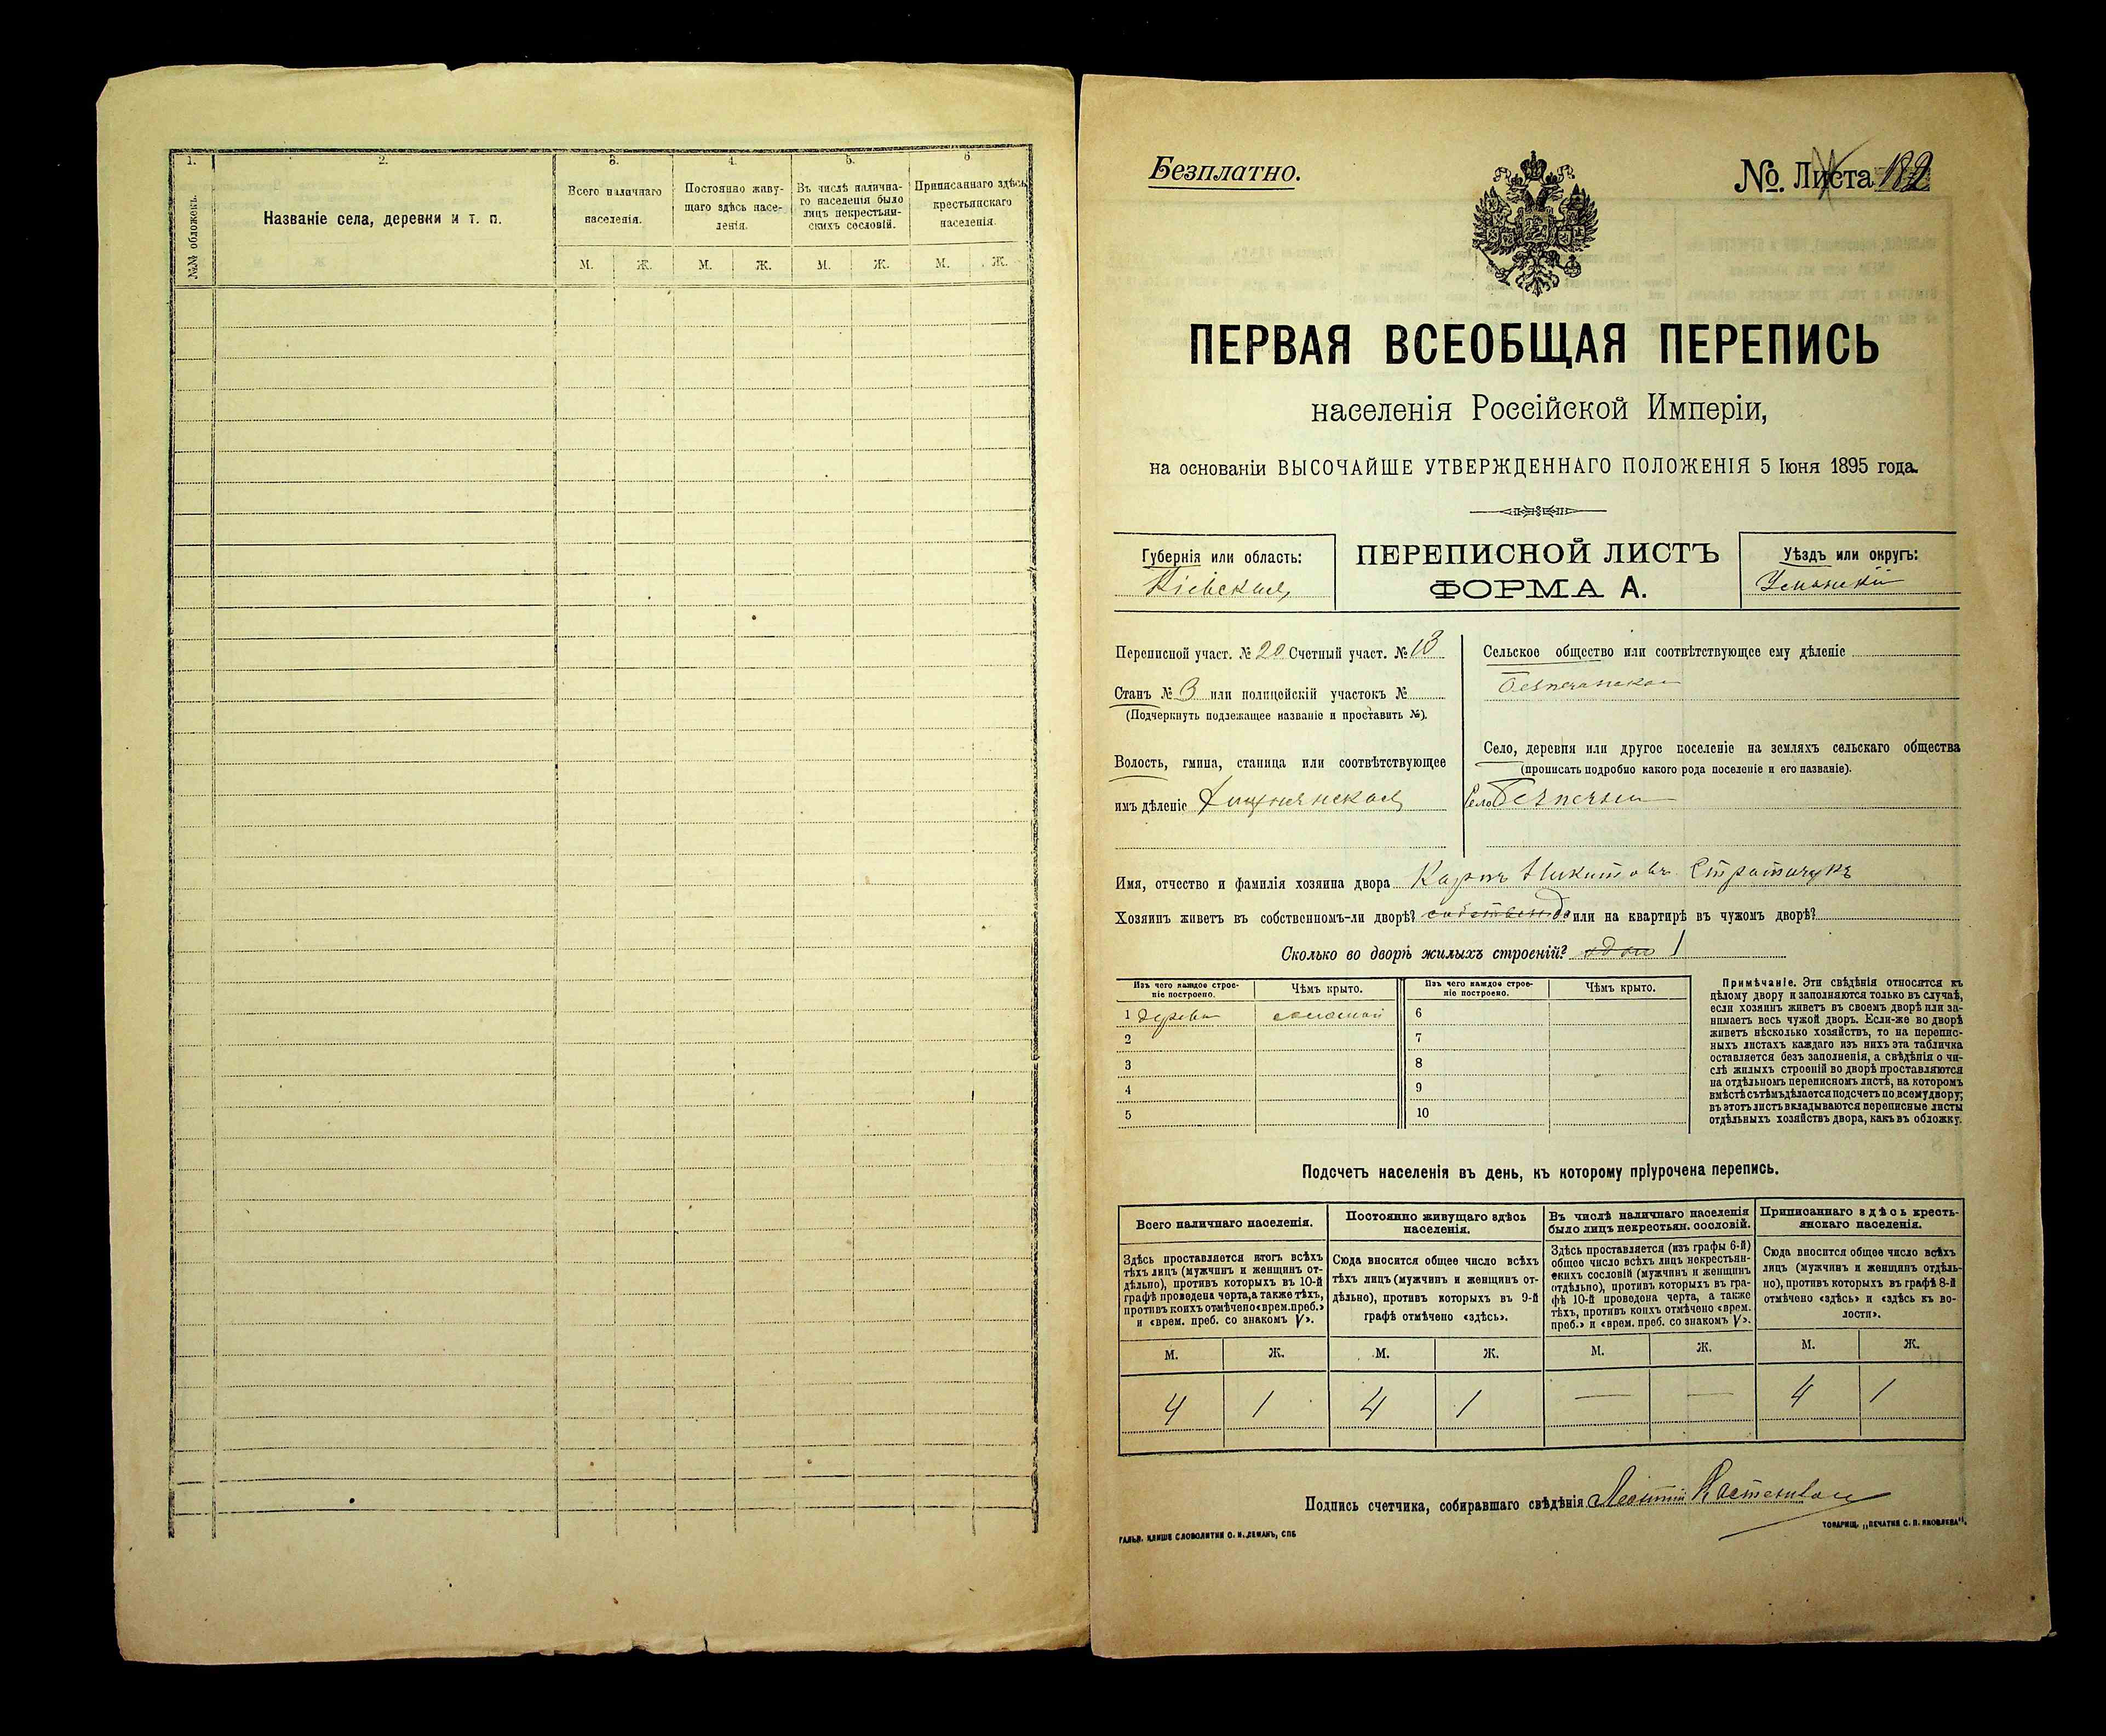 1. 2. 3. 4. 5. 6
№№ обложекъ.
Названіе села, деревни и т. п.
Всего наличнаго
населенія.
Постоянно живу-
щаго здѣсь насе-
ленія.
Въ числѣ налична-
го населенія было
лицъ некрестьян-
скихъ сословій.
Приписаннаго здѣсь
крестьянскаго
населенія.
М. Ж. М. Ж. М. Ж. М. Ж.
Безплатно.
№. Листа
ПЕРВАЯ ВСЕОБЩАЯ ПЕРЕПИСЬ
населенія Россійской Имперіи,
на основаніи ВЫСОЧАЙШЕ УТВЕРЖДЕННАГО ПОЛОЖЕНІЯ 5 Іюня 1895 года.
Губернія или область:
Кіевская
ПЕРЕПИСНОЙ ЛИСТЪ
ФОРМА А.
Уѣздъ или округъ:
Уманскій
Переписной участ. № 20 Счетный участ. № 13
Станъ № 3 или полицейскій участокъ №
(Подчеркнуть подлежащее названіе и проставить №).
Волость, гмина, станица или соотвѣтствующее
имъ дѣленіе
Сельское общество или соотвѣтствующее ему дѣленіе
Безпечанское
Село, деревня или другое поселеніе на земляхъ сельскаго общества
(прописать подробно какого рода поселеніе и его названіе).
Село
Имя, отчество и фамилія хозяина двора Карпъ Никитовъ Стратичукъ
Хозяинъ живетъ въ собственномъ-ли дворѣ? да или на квартирѣ въ чужомъ дворѣ?
Сколько во дворѣ жилыхъ строеній? один 1
Изъ чего каждое строе-
ніе построено.
Чѣмъ крыто.
Изъ чего каждое строе-
ніе построено.
Чѣмъ крыто.
1 дерева соломой 6
2 7
3 8
4 9
5 10
Примѣчаніе. Эти свѣдѣнія относятся къ
цѣлому двору и заполняются только въ случаѣ,
если хозяинъ живетъ въ своемъ дворѣ или за-
нимаетъ весь чужой дворъ. Если-же во дворѣ
живетъ нѣсколько хозяйствъ, то на перепис-
ныхъ листахъ каждаго изъ нихъ эта табличка
оставляется безъ заполненія, а свѣдѣнія о чи-
слѣ жилыхъ строеній во дворѣ проставляются
на отдѣльномъ переписномъ листѣ, на которомъ
вмѣстѣ съ тѣмъ дѣлается подсчетъ по всему двору;
въ этотъ листъ вкладываются переписные листы
отдѣльныхъ хозяйствъ двора, какъ въ обложку.
Подсчетъ населенія въ день, къ которому пріурочена перепись.
Всего наличнаго населенія.
Здѣсь проставляется итогъ всѣхъ
тѣхъ лицъ (мужчинъ и женщинъ от-
дѣльно), противъ которыхъ въ 10-й
графѣ проведена черта, а также тѣхъ,
противъ коихъ отмѣчено «врем. преб.»
и «врем. преб. со знакомъ V».
Постоянно живущаго здѣсь
населенія.
Сюда вносится общее число всѣхъ
тѣхъ лицъ (мужчинъ и женщинъ от-
дѣльно), противъ которыхъ въ 9-й
графѣ отмѣчено «здѣсь».
Въ числѣ наличнаго населенія
было лицъ некрестьян. сословій.
Здѣсь проставляется (изъ графы 6-й)
общее число всѣхъ лицъ некрестьян-
скихъ сословій (мужчинъ и женщинъ
отдѣльно), противъ которыхъ въ гра-
фѣ 10-й проведена черта, а также
тѣхъ, противъ коихъ отмѣчено «врем.
преб.» и «врем. преб. со знакомъ V».
Приписаннаго здѣсь кресть-
янскаго населенія.
Сюда вносится общее число всѣхъ
лицъ (мужчинъ и женщинъ отдѣль-
но), противъ которыхъ въ графѣ 8-й
отмѣчено «здѣсь» и «здѣсь къ во-
лости».
М. Ж. М. Ж. М. Ж. М. Ж.
4 1 4 1 — — 4 1
Подпись счетчика, собиравшаго свѣдѣнія Леонтій
ГАЛЬВ. КЛИШЕ СЛОВОЛИТНИ О. И. ЛЕМАНЪ, СПБ
ТОВАРИЩ. „ПЕЧАТНЯ С. П. ЯКОВЛЕВА".